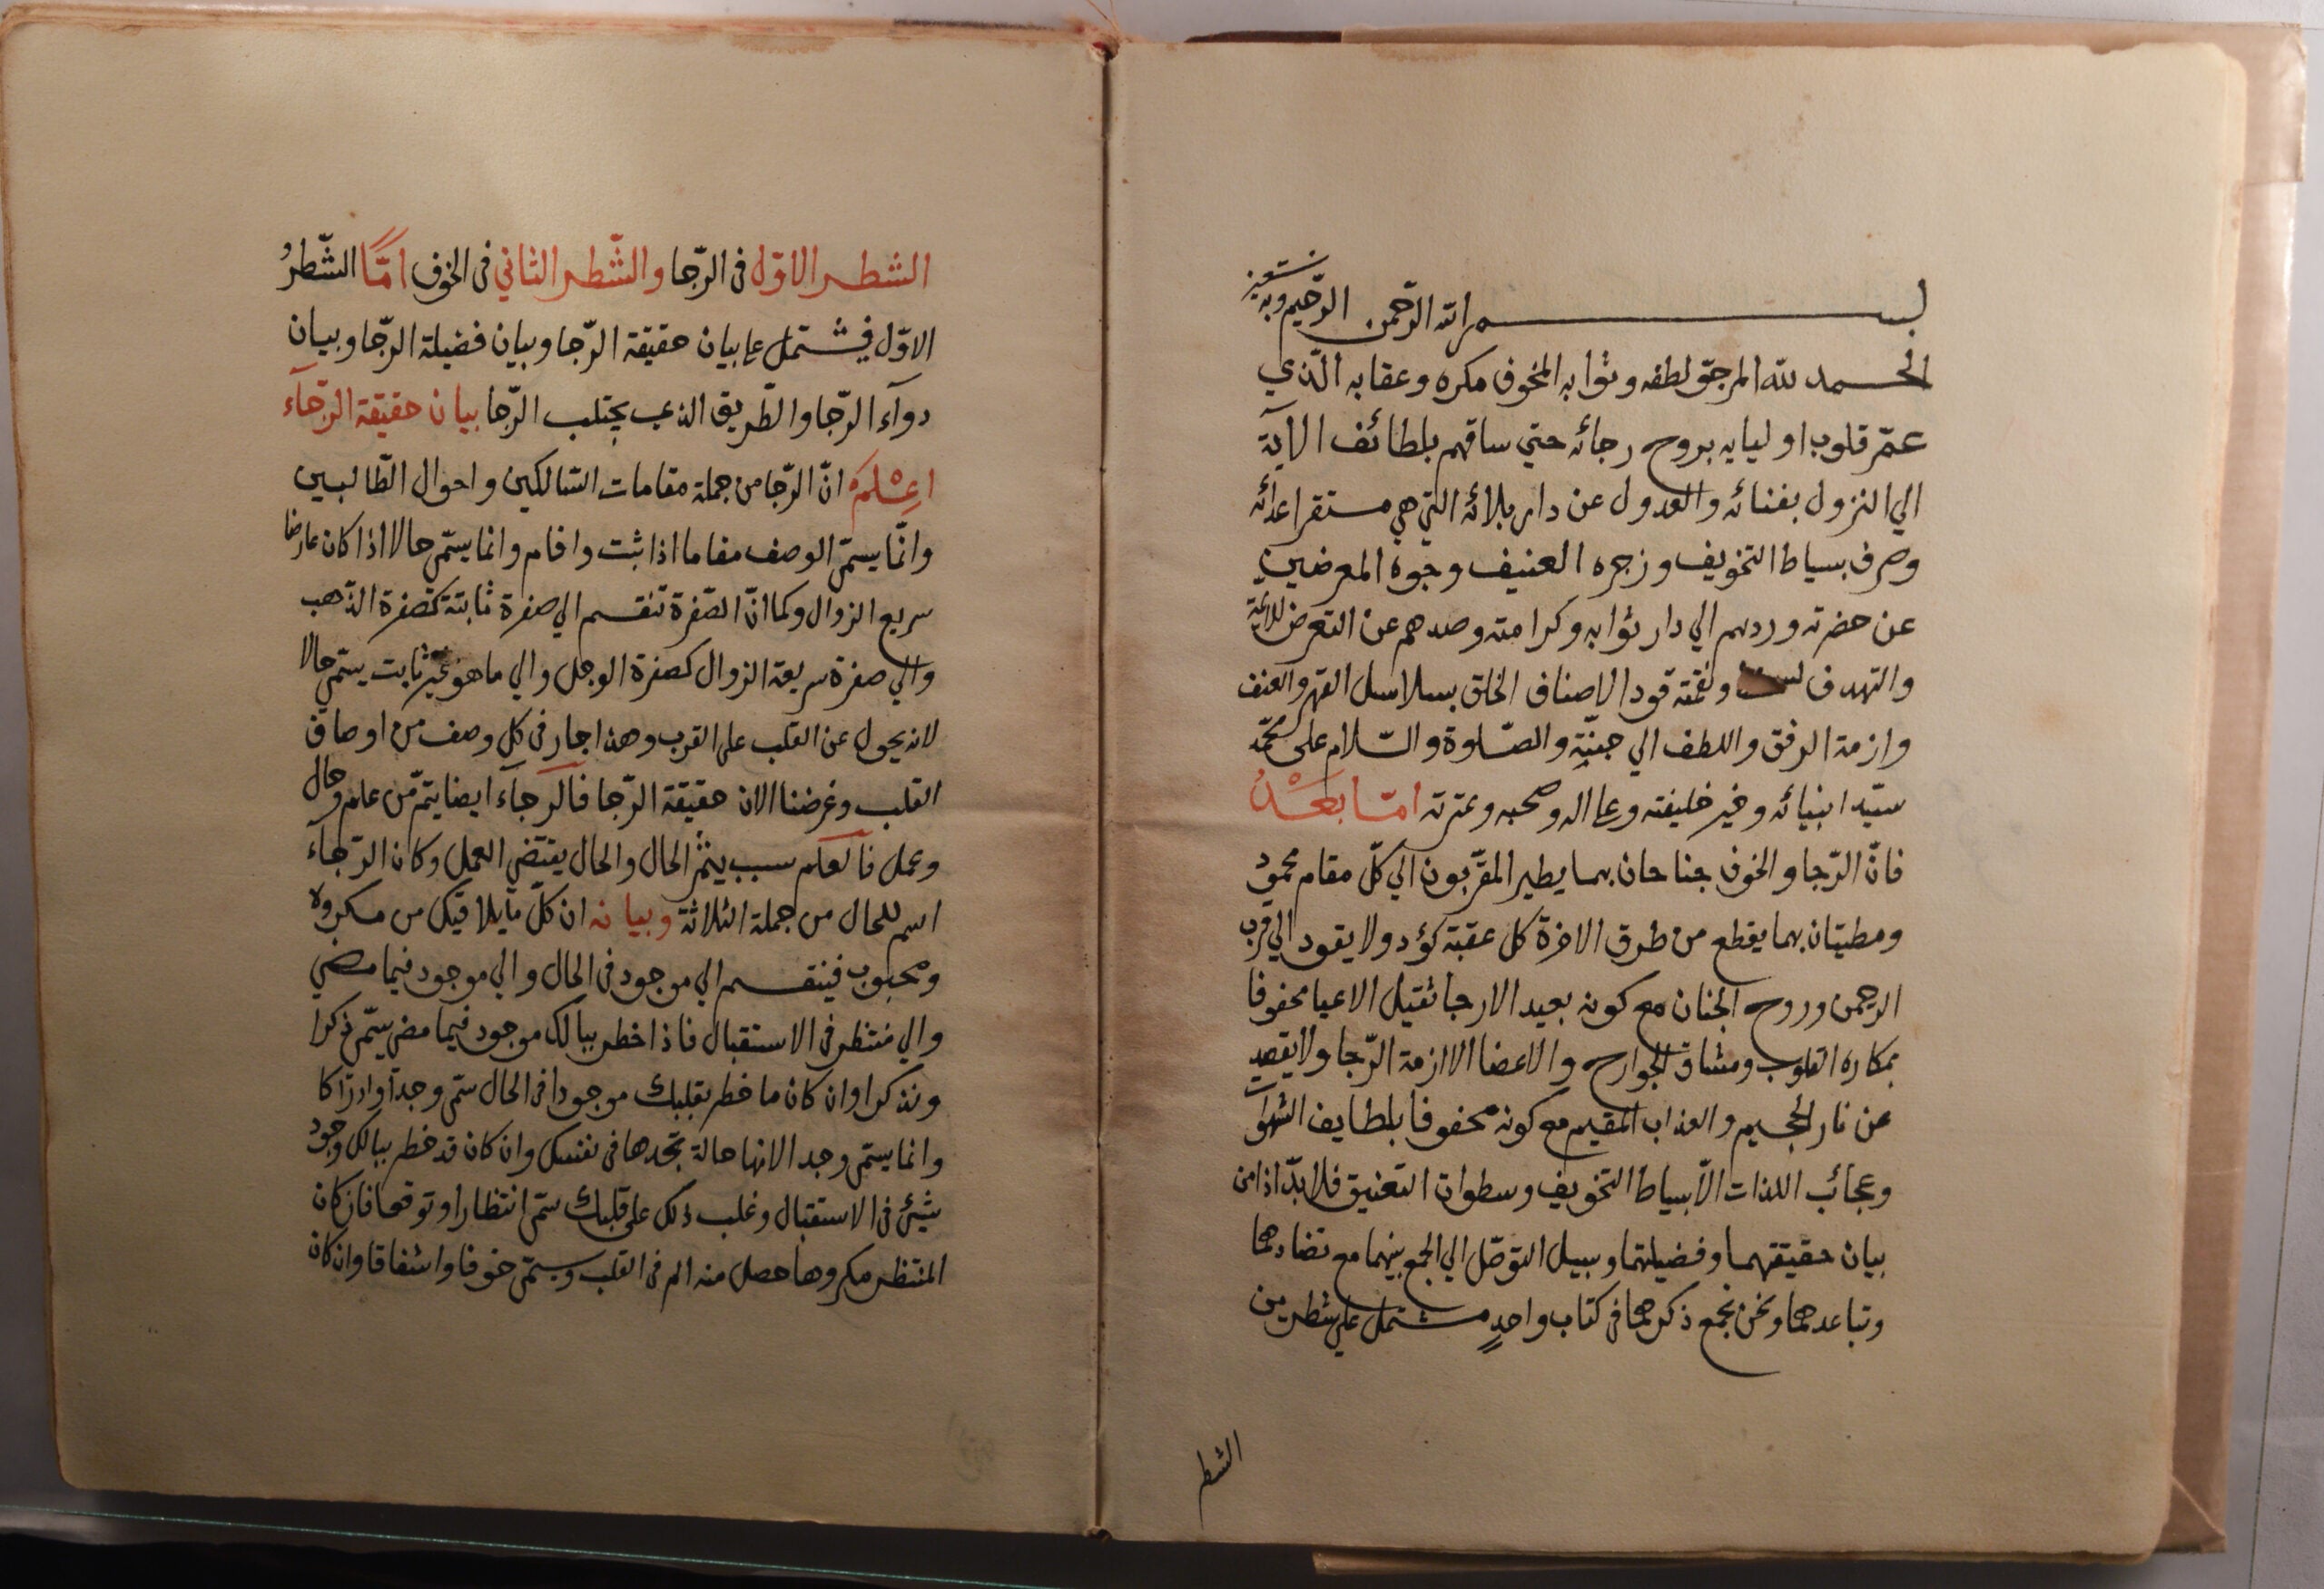 بسم الله الرحمن الرحيم وبه نستعين
الحمد لله المرجوّ لطفه وثوابه المخوف مكره وعقابه الّذي
عمّر قلوب اوليايه بروح رجائه حتي ساقهم بلطائف الآية
الي النزول بفنائه والعدول عن دار بلائه التي هي مستقر اعدائه
وصرف بسياط التخويف وزجره العنيف وجوه المعرضين
عن حضرته وردهم الي دار ثوابه وكرامته وصدهم عن التعرض
والتهدف ونقمته قودا لاصناف الخلق بسلاسل القهر والعنف
وازمة الرفق واللطف الي جنّته والصّلوة والسّلام على محمّد
سيّد انبيائه وخير خليفته وعلى اله وصحبه وعترته امّا بعد
فانّ الرّجا والخوف جناحان بهما يطير المقرّبون الي كلّ مقام محمود
ومطيتان بهما يقطع من طرق الاخرة كل عقبة كؤد ولا يقود الي قرب
الرحمن وروح الجنان مع كونه بعيد الارجا ثقيل الاعيا محفوفا
بمكاره القلوب ومشاق الجوارح والاعضا الا ازمة الرّجا ولا يقصد
عن نار الجحيم والعذاب المقيم مع كونه محفوفا بلطايف الشهوات
وعجائب اللذات الاّ سياط التخويف وسطوات التعنيق فلا بدّ اذا من
بيان حقيقتهما وفضيلتهما وسبيل التوصّل الي الجمع بينهما مع تضادهما
وتباعدهما ونحن نجمع ذكرهما في كتاب واحدٍ مشتمل علي شطرين
الشطر
الشطر الاوّل في الرّجا والشّطر الثاني في الخوف امّا الشّطرُ
الاوّل فيشتمل على بيان حقيقة الرّجا وبيان فضيلة الرّجا وبيان
دوآء الرّجا والطّريق الذي يجتلب الرّجا بيان حقيقة الرّجآء
اعلم انّ الرّجا من جملة مقامات السّالكين واحوال الطّالبين
وانّما يسمّى الوصف مقاما اذا ثبت واقام وانما يسمّي حالا اذا كان عارضا
سريع الزوال وكما انّ الصّفرة تنقسم الي صفرة ثابتة كصفرة الذّهب
والي صفرة سريعة الزوال كصفرة الوجل والي ما هو غير ثابت يسمّي حالا
لانه يحول عن القلب على القرب وهذا جار في كل وصف من اوصاف
القلب وغرضنا الان حقيقة الرّجا فالرجآء ايضا يتمّ من علم وحال
وعمل فالعلم سبب يثمر الحال والحال يقتضي العمل وكان الرّجآء
اسم للحال من جملة الثلاثة وبيانه ان كلّ ما يلاقيك من مكروه
ومحبوب فينقسم الي موجود في الحال والي موجود فيما مضي
والي منتظر في الاستقبال فاذا خطر ببالك موجود فيما مضي يسّمي ذكرا
وتذكرا وان كان ما خطر بقلبك موجودا في الحال سمّي وجداً وادراكا
وانما يسمّي وجدا لانها حالة تجدها في نفسك وان كان قد خطر ببالك وجود
شيئ في الاستقبال وغلب ذلك على قلبك سمّي انتظارا وتوقعا فان كان
المنتظر مكروها حصل منه الم في القلب ويسمّي خوفا واشفاقا وان كان